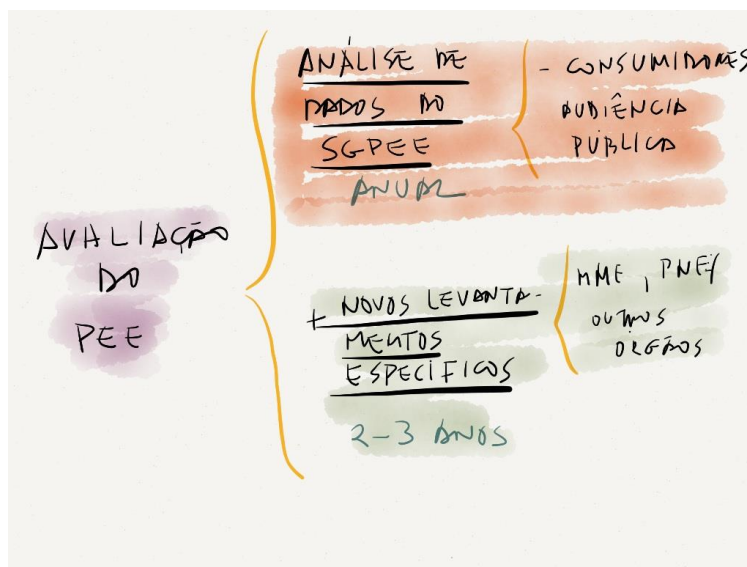 AVALIAÇÃO
DO
PEE
ANÁLISE DE
DADOS DO
SGPEE
ANUAL
- CONSUMIDORES
AUDIÊNCIA
PÚBLICA
+ NOVOS LEVANTA-
MENTOS
ESPECÍFICOS
2-3 ANOS
MME, PNEf
OUTROS
ORGÃOS